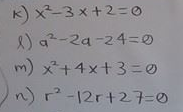 k) x²-3x+2=0
l) a²-2a-24=0
m) x²+4x+3=0
n) r²-12r+27=0